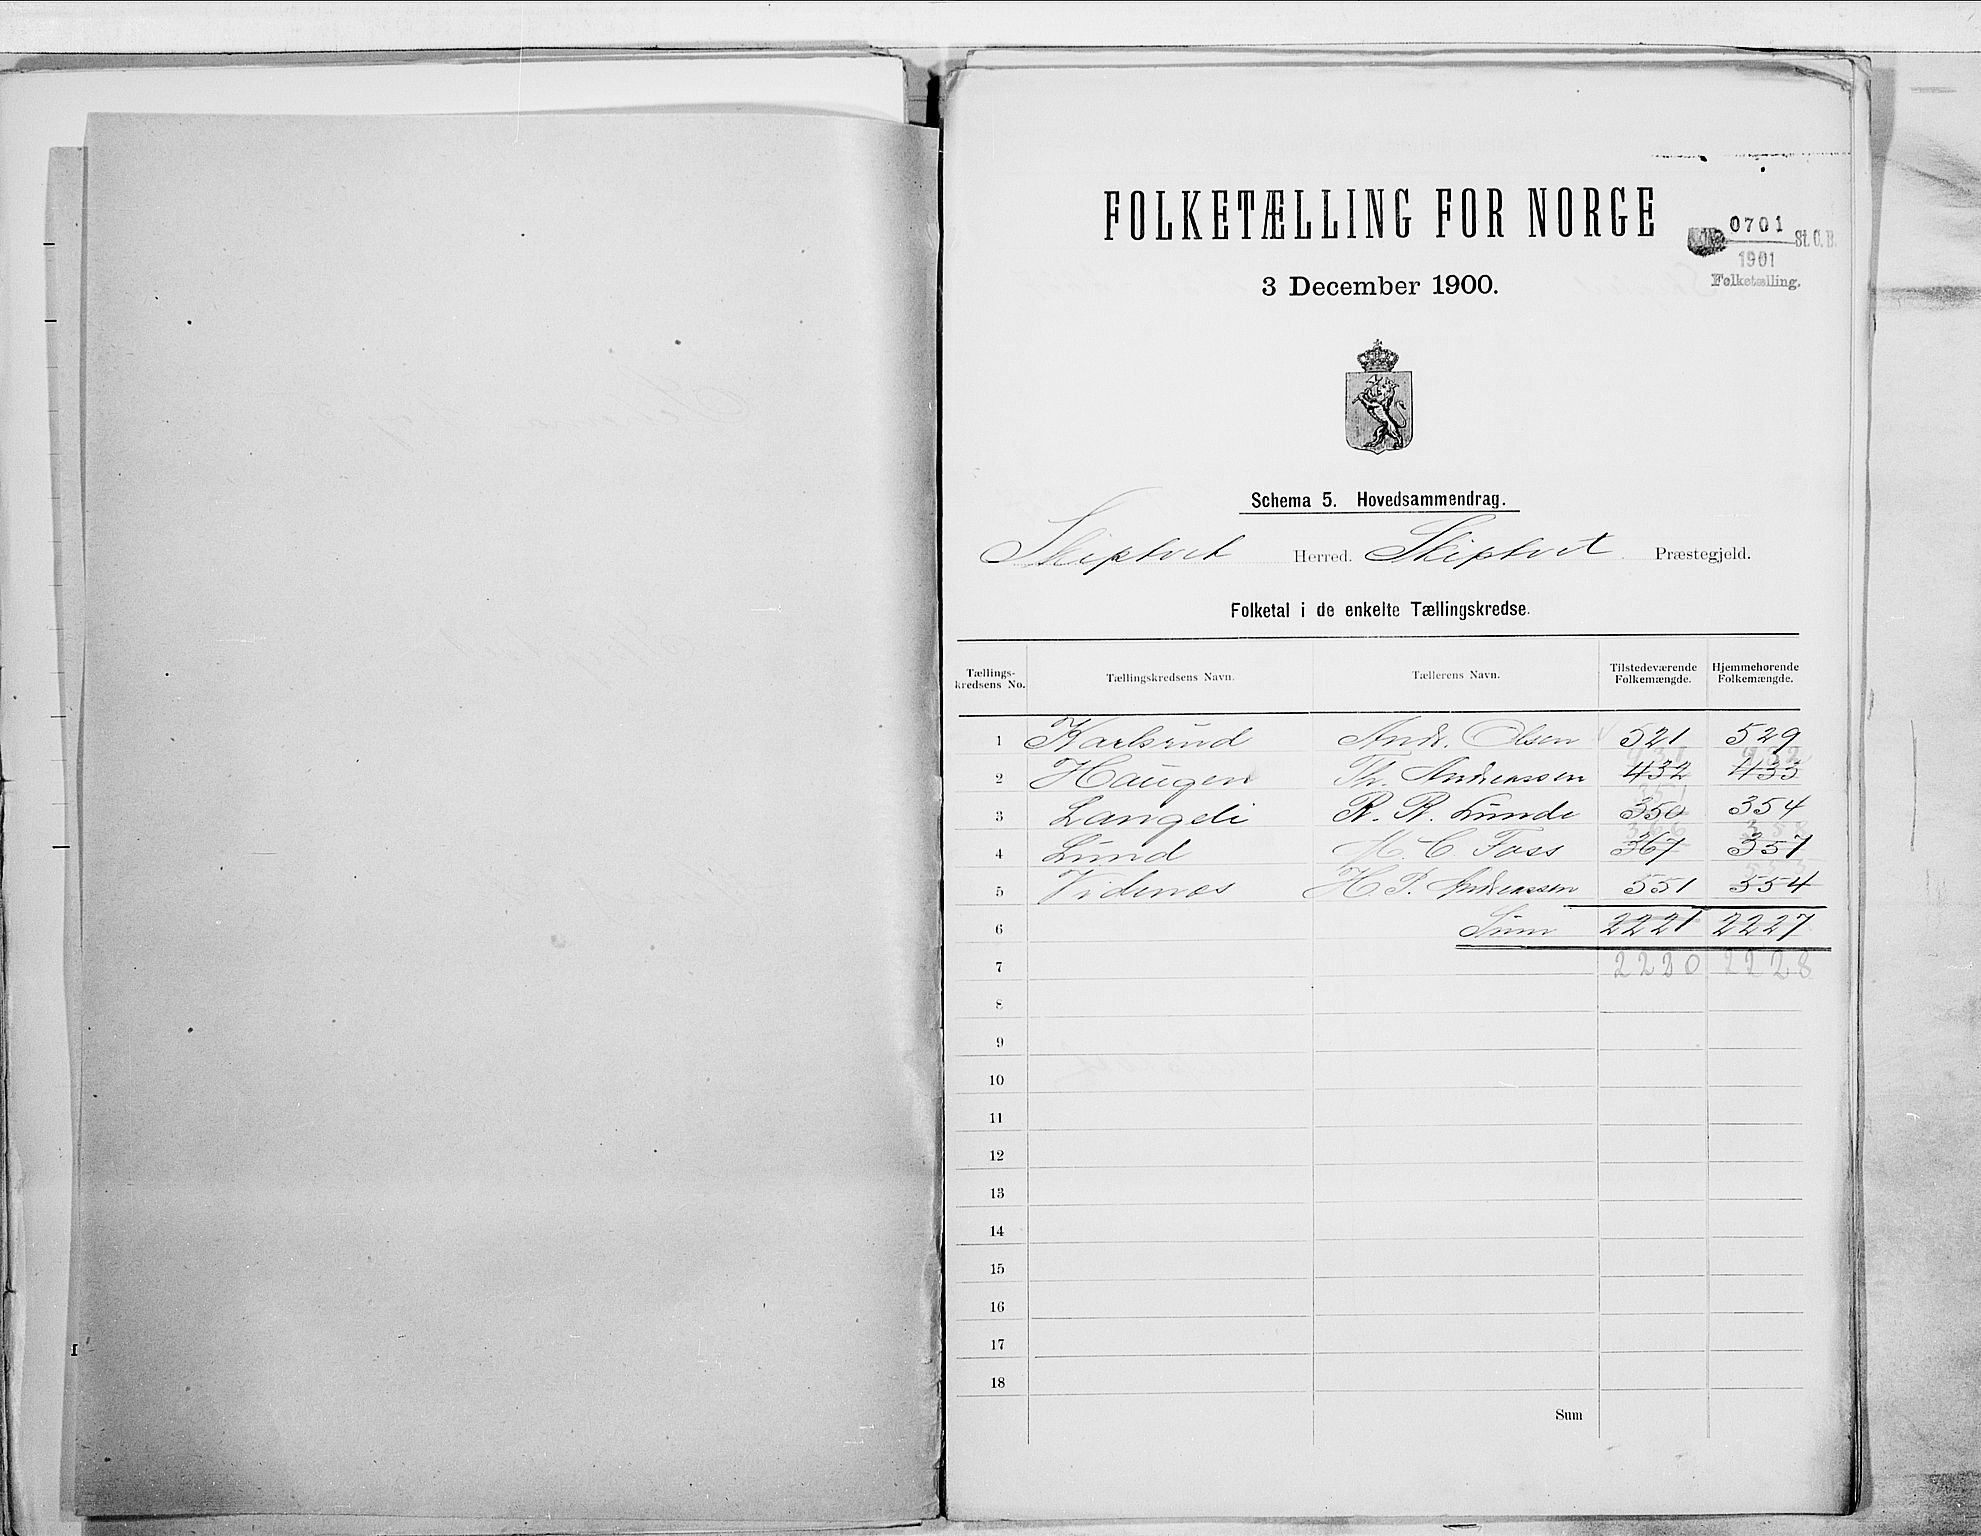 FOLKETÆLLING FOR NORGE
0701 St. C. B.
1901
Folketælling.
3 December 1900.
Schema 5. Hovedsammendrag.
Skiptvet Herred. Skiptvet Præstegjeld.
Folketal i de enkelte Tællingskredse.
Tællings-kredsens No. Tællingskredsens Navn. Tællerens Navn. Tilstedeværende Folkemængde. Hjemmehørende Folkemængde.
1 Karlsrud Andr. Olsen 521 529
2 Haugen Th. Andreassen 432 433
3 Langeli R. R. Lunde 350 354
4 Lund M. C. Foss 367 357
5 Videnes H. P. Andreassen 551 554
6 Sum 2221 2227
7 2220 2228
8
9
10
11
12
13
14
15
16
17
18
Sum